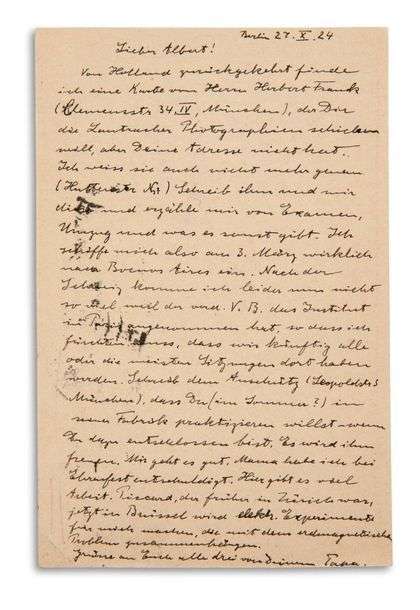 Berlin 27. X. 24
Lieber Albert!
Von Holland zurückgekehrt finde
ich eine Karte von Herrn Herbert Franck
(Clemensstr 34 IV, München), der Dir
die Lautracher Photographieen schicken
will, aber Deine Adresse nicht hat.
Ich weiss sie auch nicht mehr genau
(Huttenstr Nr?) Schreib ihm und mir
und erzähle mir von Examen,
Umzug und was es sonst gibt. Ich
schiffe mich also am 3. März wirklich
nach Buenos Aires ein. Nach der
Schweiz komme ich leider nun nicht
so viel weil der verd. V. B. das Institut
in Paris angenommen hat, so dass ich
fürchten muss, dass wir künftig alle
oder die meisten Sitzungen dort haben
werden. Schreib dem Anschütz (Leopoldstr 6
München), dass Du (im Sommer?) in
seiner Fabrik praktizieren willst wenn
Du dazu entschlossen bist. Es wird ihn
freuen. Mir geht es gut. Mama habe ich bei
Ehrenfest entschuldigt. Hier gibt es viel
Arbeit. Piccard, der früher in Zürich war,
jetzt in Brüssel wird elektr. Experimente
für mich machen, die mit dem erdmagnetischen
Problem zusammenhängen.
Grüsse an Euch alle drei von Deinem Papa.